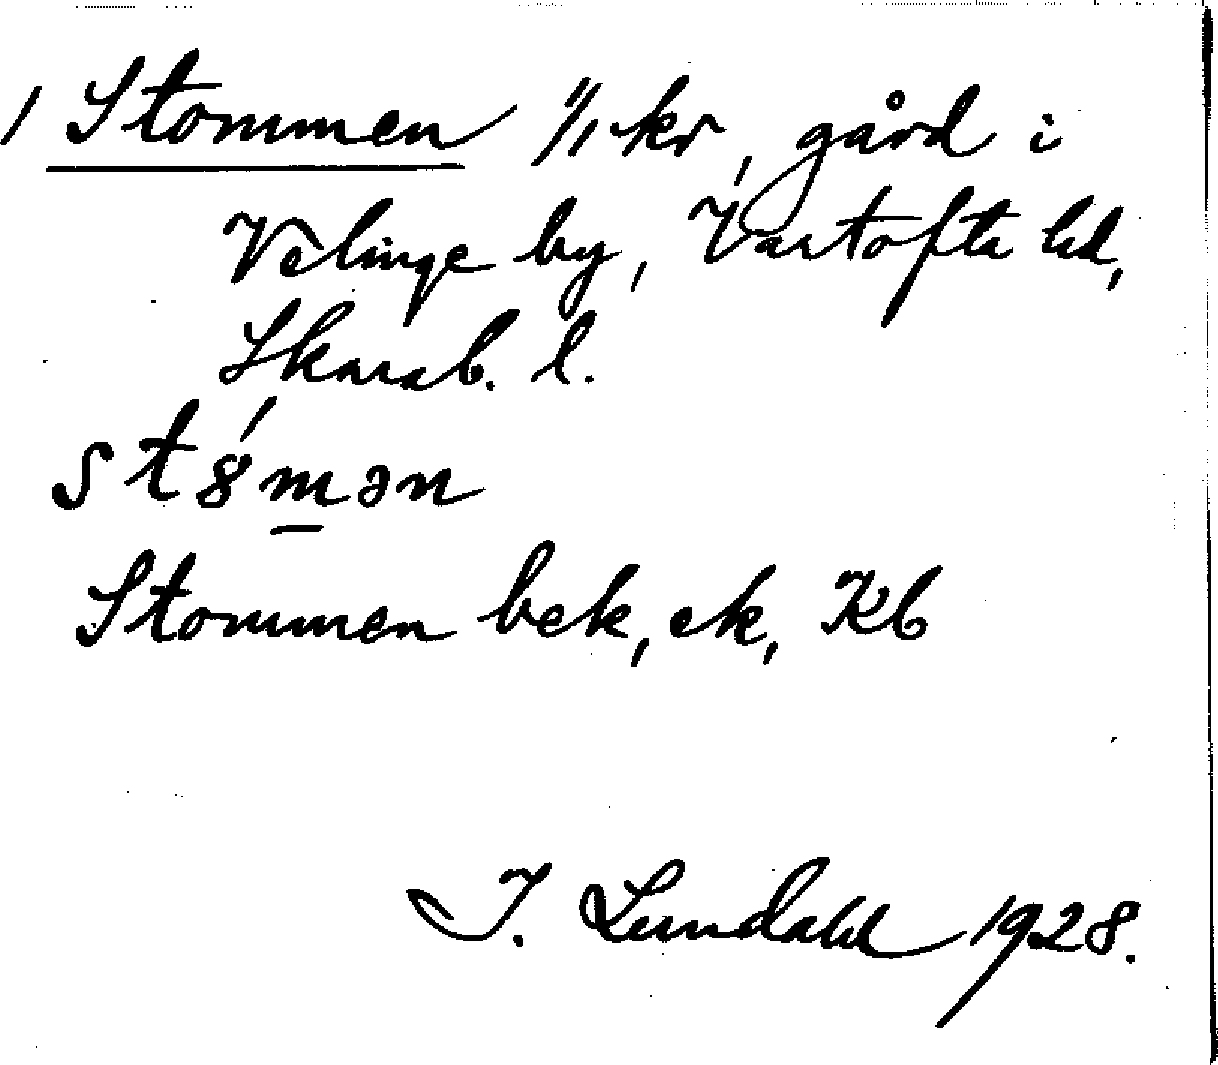 / Stommen 1/1 kr, gård i
Velinge by, Vartofta hd,
Skarab. l.
st8́mən
Stommen bek, ek, Kb
I. Lundahl 1928.